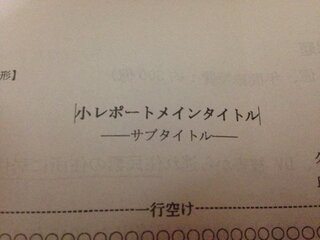 形】
小レポートメインタイトル
――サブタイトル――
行空け
○○○○○○○○○○○○○○